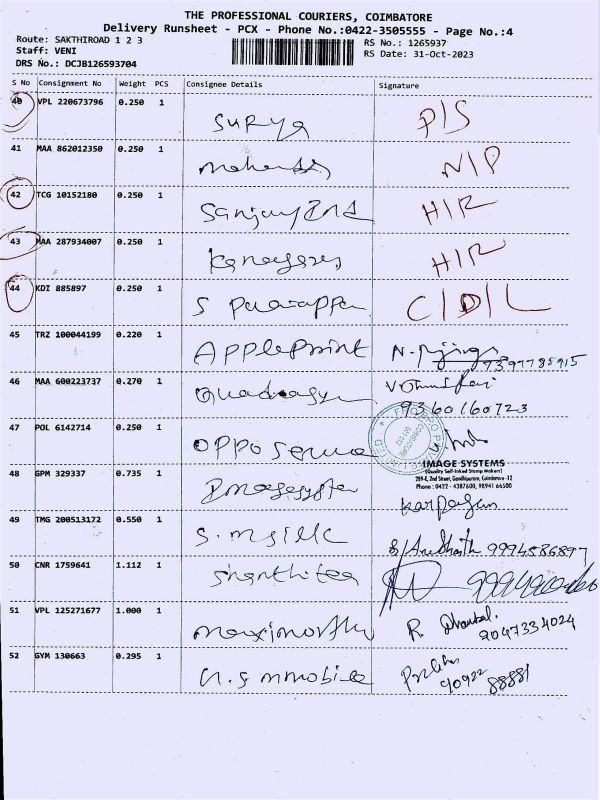 THE PROFESSIONAL COURIERS, COIMBATORE
Delivery Runsheet - PCX - Phone No.:0422-3505555 - Page No.:4
Route: SAKTHIROAD 1 2 3
RS No.: 1265937
Staff: VENI
RS Date: 31-Oct-2023
DRS No.: DCJB126593704
S No Consignment No Weight PCS Consignee Details Signature
40 VPL 220673796 0.250 1 Surya P/S
41 MAA 862012350 0.250 1 N/P
42 TCG 10152180 0.250 1 Sanjay Ind H/R
43 MAA 287934007 0.250 1 H/R
44 KDI 885897 0.250 1 S C/D/L
45 TRZ 100044199 0.220 1 Appleprint N.
7397785915
46 MAA 600223737 0.270 1
9360160723
47 POL 6142714 0.250 1 OPPO
IMAGE SYSTEMS
(Quality Self-Inking Stamp Makers)
289-E, 2nd Street, Gandhipuram, Coimbatore -12
Phone : 0422 - 4387600, 98941 66500
48 GPM 329337 0.735 1 Imagesyste
49 TMG 200513172 0.550 1 9994586897
50 CNR 1759641 1.112 1 Shanthitea
51 VPL 125271677 1.000 1 R.
9047334024
52 GYM 130663 0.295 1
90922 88881